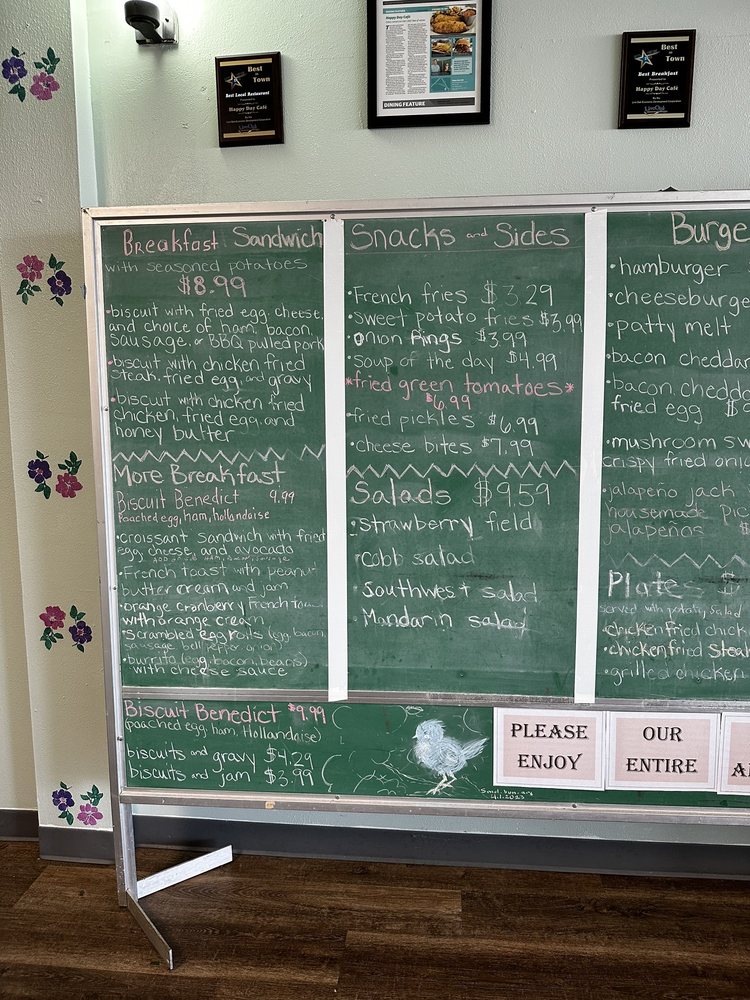 Best in Town
Best Local Restaurant
Happy Day Café
Happy Day Café
DINING FEATURE
Best in Town
Best Breakfast
Happy Day Café
Breakfast Sandwich
with seasoned potatoes
$8.99
•biscuit with fried egg, cheese,
and choice of ham, bacon,
sausage, or BBQ pulled pork
•biscuit with chicken fried
steak, fried egg, and gravy
•biscuit with chicken fried
chicken, fried egg, and
honey butter
More Breakfast
Biscuit Benedict 9.99
Poached egg, ham, hollandaise
•croissant sandwich with fried
egg, cheese, and avocado
•French toast with peanut
butter cream and jam
•orange cranberry French toast
with orange cream
•scrambled egg rolls (egg, bacon,
sausage, bell pepper, onion)
•burrito (egg, bacon, beans)
with cheese sauce
Biscuit Benedict $9.99
(poached egg, ham, Hollandaise)
biscuits and gravy $4.29
biscuits and jam $3.99
Snacks and Sides
•French fries $3.29
•sweet potato fries $3.99
•onion rings $3.99
•soup of the day $4.99
*fried green tomatoes*
$6.99
•fried pickles $6.99
•cheese bites $7.99
Salads $9.59
•strawberry field
•cobb salad
•Southwest salad
Mandarin salad
Burge
•hamburger
•cheeseburge
•patty melt
•bacon cheddar
•bacon, chedda
fried egg $
•mushroom sw
crispy fried onio
•jalapeño jack
housemade pic
jalapeños $
Plate $
served with potato, salad
•chicken fried chick
•chicken fried steak
•grilled chicken
4.1.2023
PLEASE
ENJOY
OUR
ENTIRE